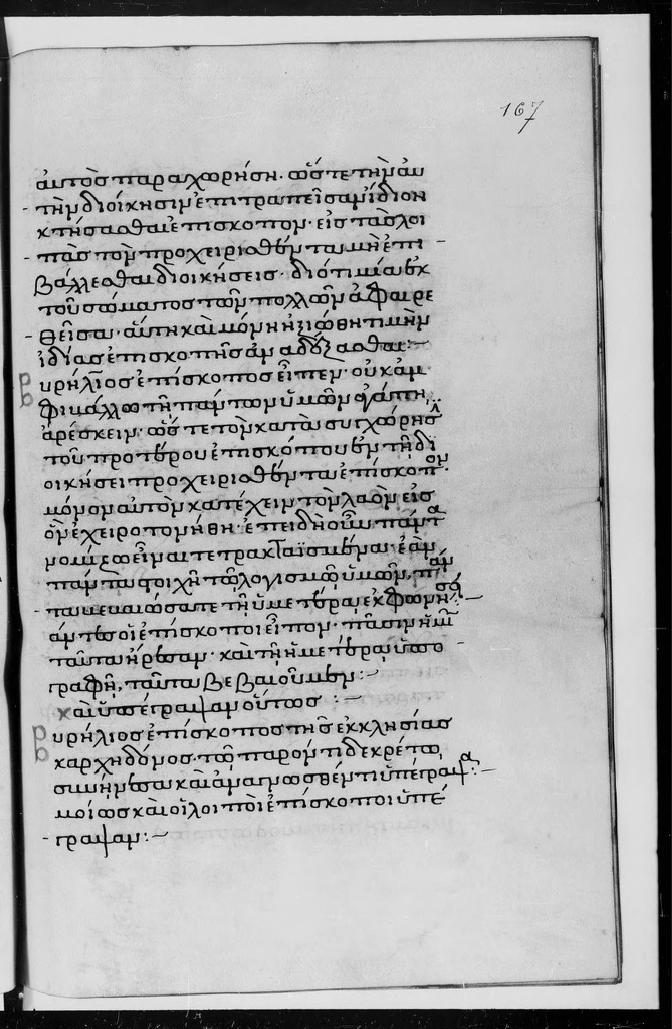 167
αυτὸς παραχωρήση. ὥστε τὴν αὐ
τὴν διοίκησιν ἐπιτραπεῖσαν ἴδιον
κτήσασθαι ἐπίσκοπον· εἰς τὰς λοι
πὰς τὸν προχειρισθέντα μὴ ἐπι
βάλλεσθαι διοικήσεις· διότι μία ἐκ
τοῦ σώματος τῶν πολλῶν ἀφαιρε
θεῖσα· αὕτη καὶ μόνη ἠξιώθη τιμὴν
ἰδίας ἐπισκοπῆς ἀναδέξασθαι:
υρήλιος ἐπίσκοπος εἶπεν· οὐκ ἀμ
φιβάλλω τῇ πάντων ὑμῶν ἀγάπῃ,
ἀρέσκειν· ὥστε τὸν κατὰ συγχώρησ
τοῦ προτέρου ἐπισκόπου ἐν τῇ δι
οικήσει προχειρισθέντα ἐπίσκοπον.
μόνον αὐτὸν κατέχειν τὸν λαὸν εἰς
ὃν ἐχειροτονήθη· ἐπειδὴ οὖν πάντα
νομίζω εἶναι τετρακταϊσμένα· ἐὰν
πάντα στοιχῇ τῷ λογισμῷ ὑμῶν,
τα βεβαιώσατε τῇ ὑμετέρᾳ ἐκφωνή
άντες οἱ ἐπίσκοποι εἶπον· πᾶσιν ἡμῖν
ταῦτα ἤρεσαν· καὶ τῇ ἡμετέρᾳ ὑπο
γραφῇ, ταῦτα βεβαιοῦμεν:
καὶ ὑπέγραψαν οὕτως:
υρήλιος ἐπίσκοπος τῆς ἐκκλησίας
καρχηδόνος· τῷ παρόντι δεκρέτῳ
συνῄνεσα καὶ ἀναγνωσθέντι ὑπέγραψα:
μοίως καὶ οἱ λοιποὶ ἐπίσκοποι ὑπέ
γραψαν: